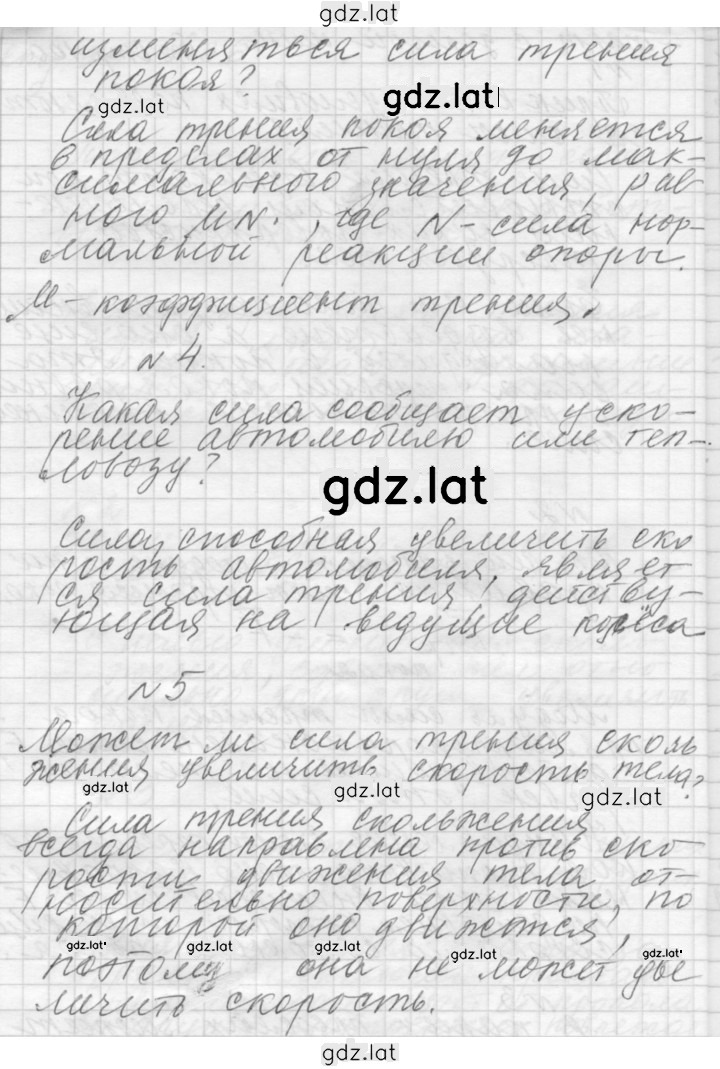 gdz.lat
изменяться сила трения
покоя?
gdz.lat
gdz.lat
Сила трения покоя меняется
в пределах от нуля до мак-
симального значения, рав
ного μN., где N-сила нор-
мальной реакции опоры.
μ-коэффициент трения.
№4.
Какая сила сообщает уско-
рение автомобилю или теп-
ловозу?
gdz.lat
Сила, способная увеличить ско
рость автомобиля, являет
ся сила трения, действу-
ющая на ведущие колёса
№5
Может ли сила трения сколь
жения увеличить скорость тела?
gdz.lat
gdz.lat
gdz.lat
Сила трения скольжения
всегда направлена против ско
рости движения тела от-
носительно поверхности, по
которой оно движется,
gdz.lat
gdz.lat
gdz.lat
gdz.lat
gdz.lat
поэтому она не может уве
личить скорость.
gdz.lat